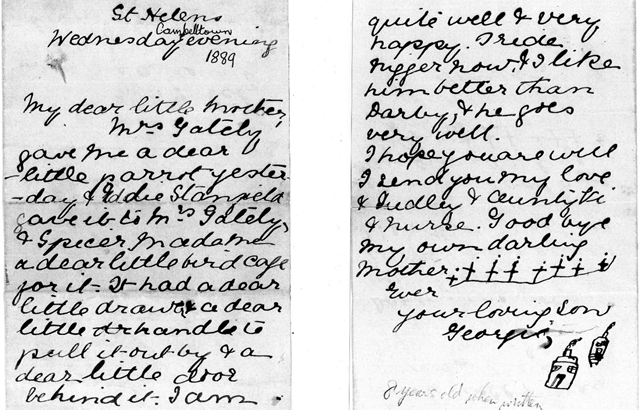 St Helens
Campbelltown
Wednesday evening
1889
My dear little Mother,
Mrs Gately
gave me a dear
-little parrot yester-
-day & Eddie Stanfield
gave it to Mrs Gately,
& Spicer made me
a dear little bird cage
for it- It had a dear
little draw & a dear
little handle to
pull it out by & a
dear little door
behind it. I am
quite well & very
happy. I ride
Nigger now & I like
him better than
Darby, & he goes
very well.
I hope you are well
I send you my love
& Dudley &
& nurse. Good bye
my own darling
Mother.
Ever
your loving son
Georgie
8 years old when written